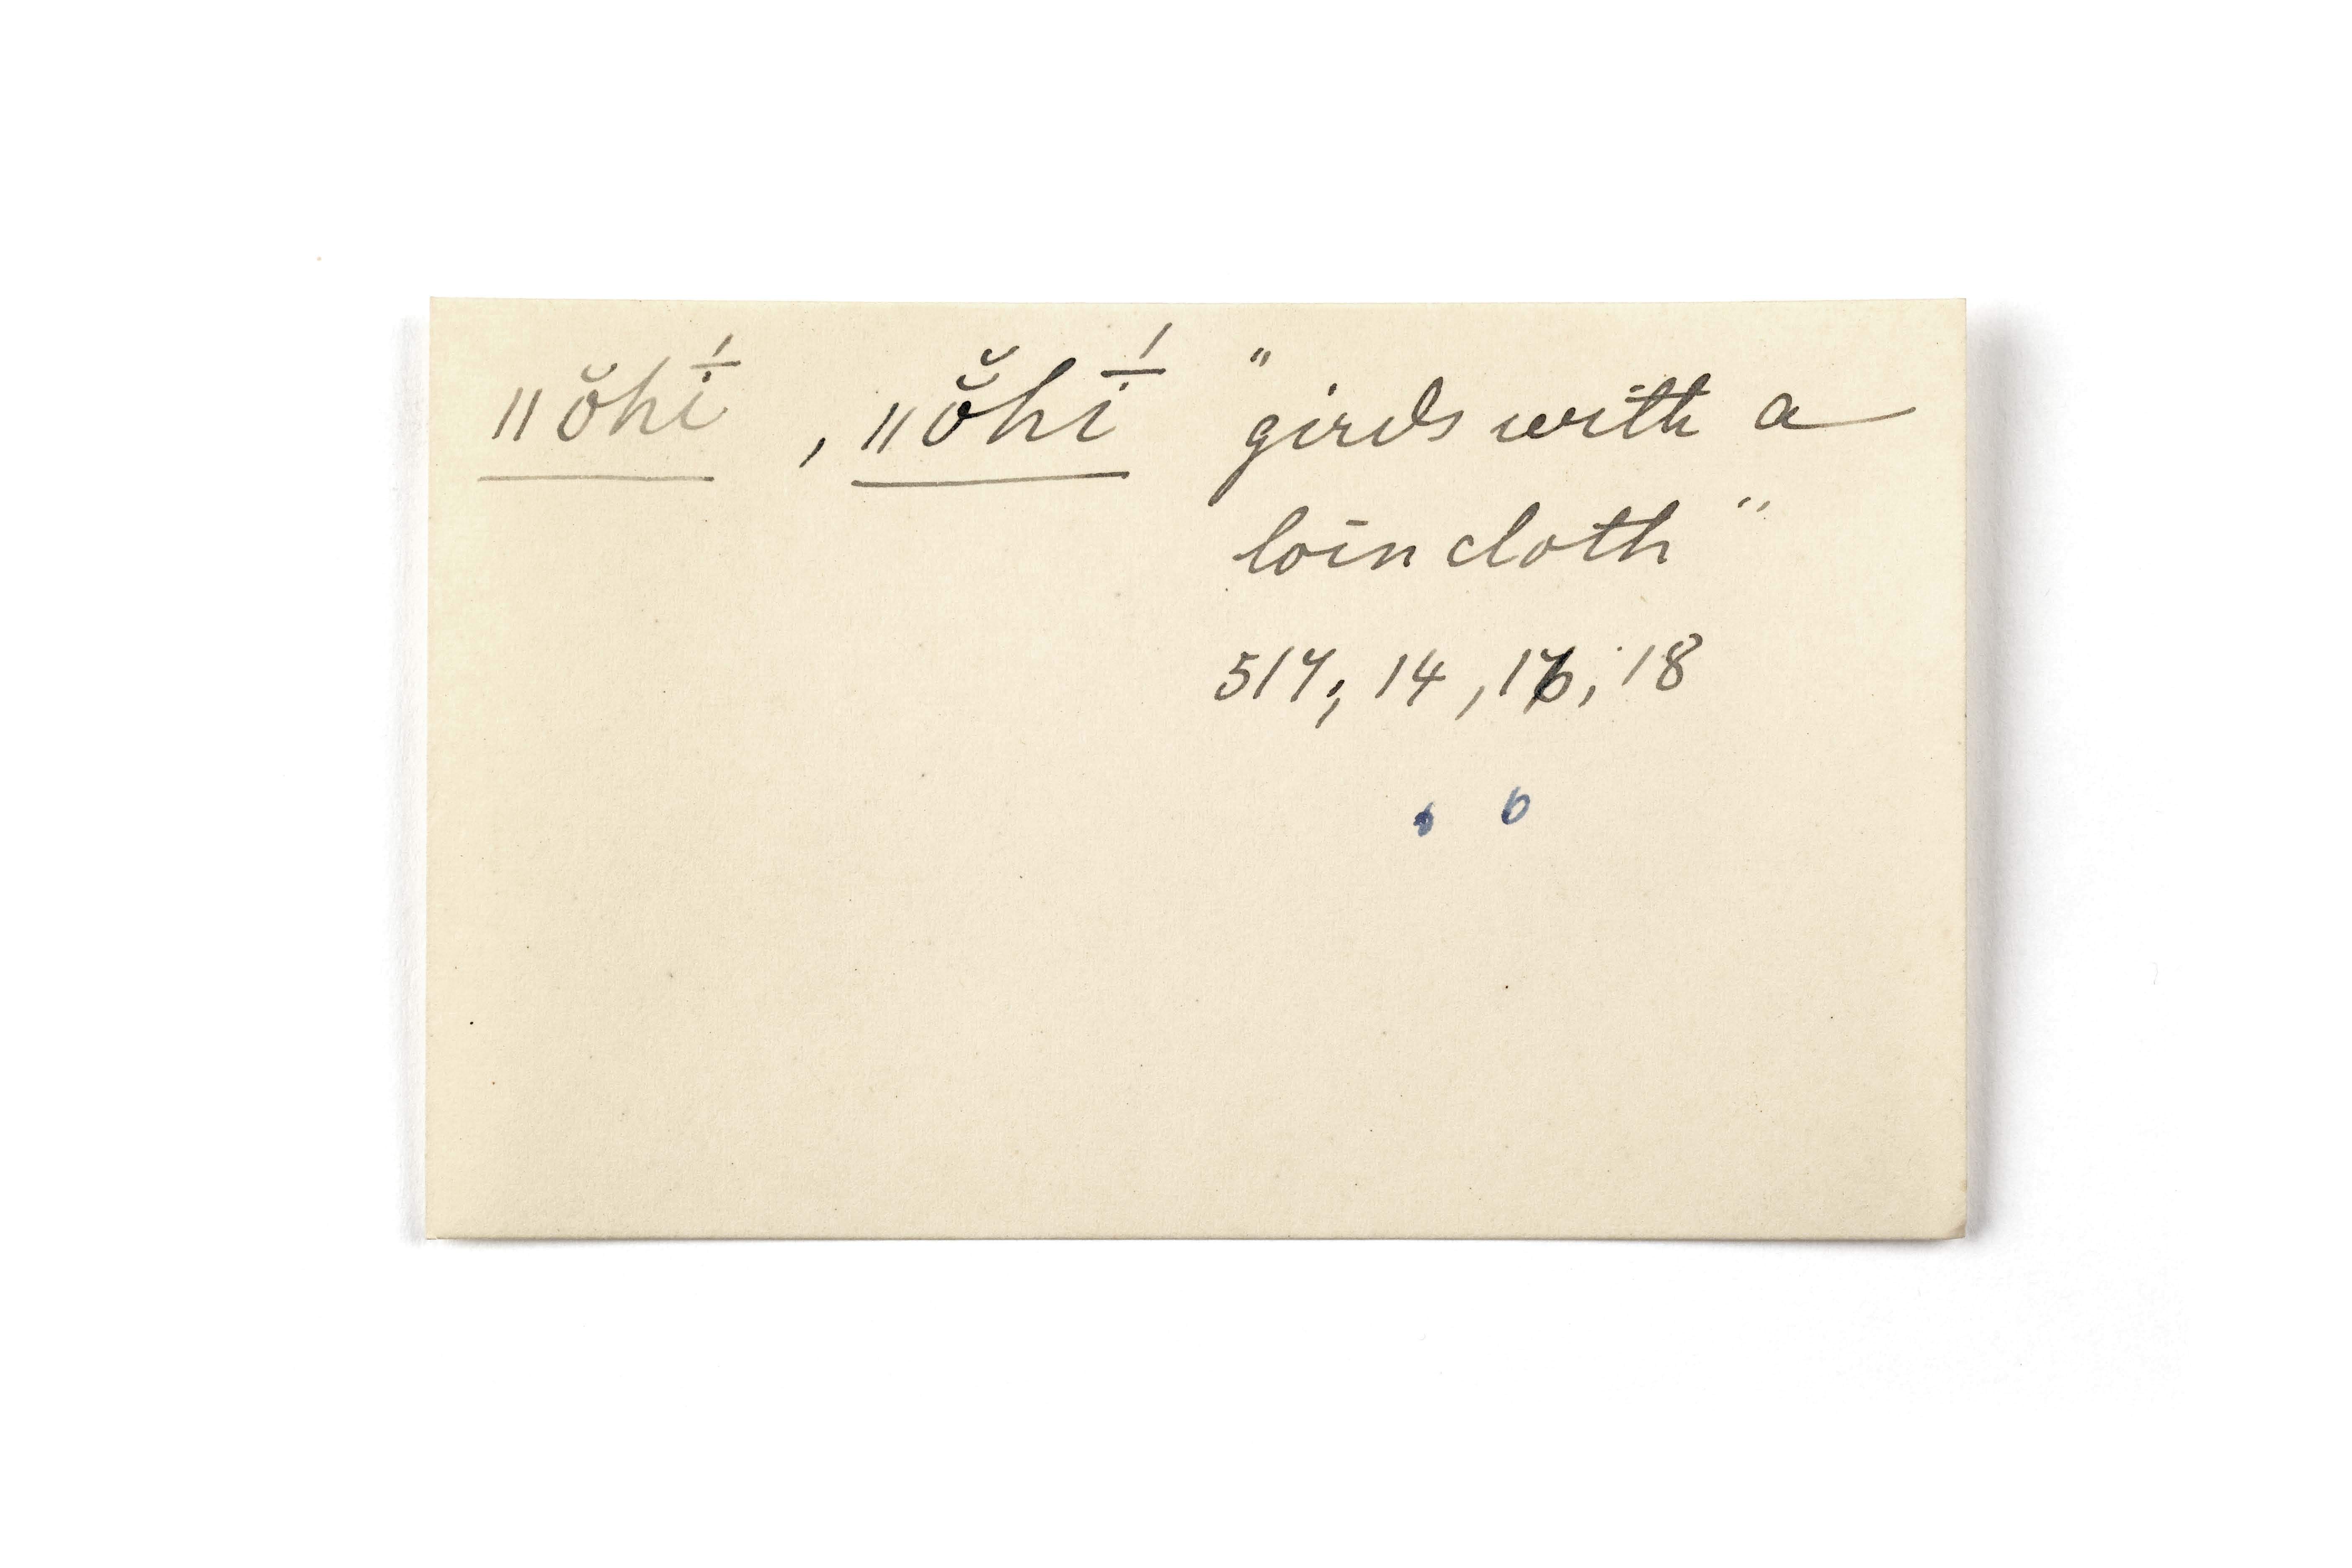 ǁŏhī́, ǁŏ̆hī́ "girds with a
loin cloth"
517; 14, 16, 18
6